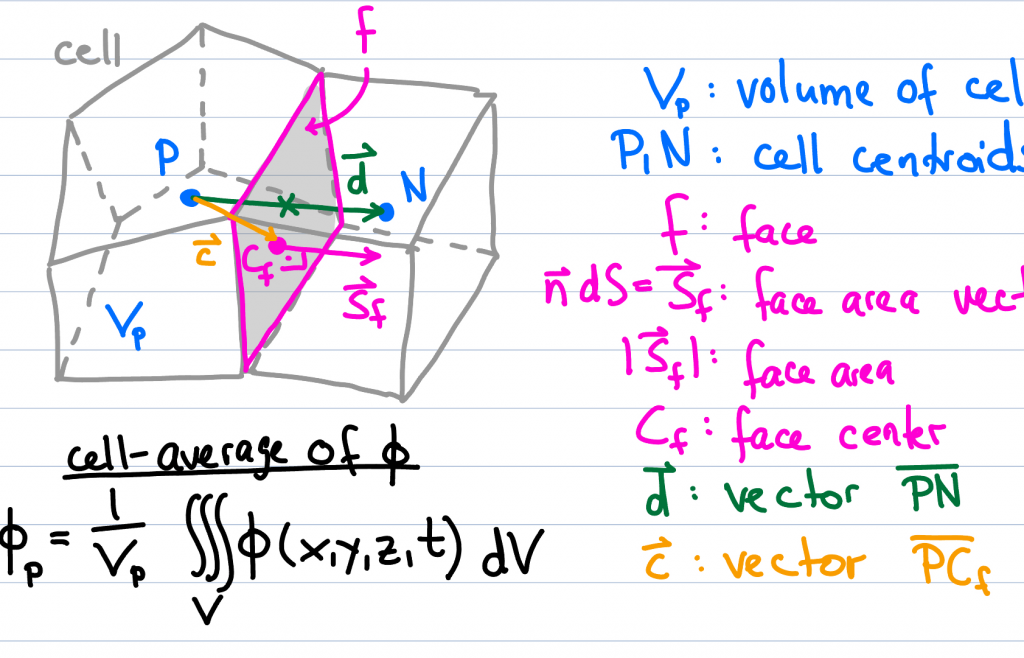 cell
f
P
d⃗
N
c⃗
C_f
S⃗_f
V_p
V_p : volume of cel
P, N : cell centroids
f : face
n⃗ dS = S⃗_f : face area vect
|S⃗_f| : face area
C_f : face center
d⃗ : vector P̅N̅
c⃗ : vector P̅C̅_f
cell-average of ϕ
ϕ_p = 1/V_p ∭_V ϕ(x,y,z,t) dV